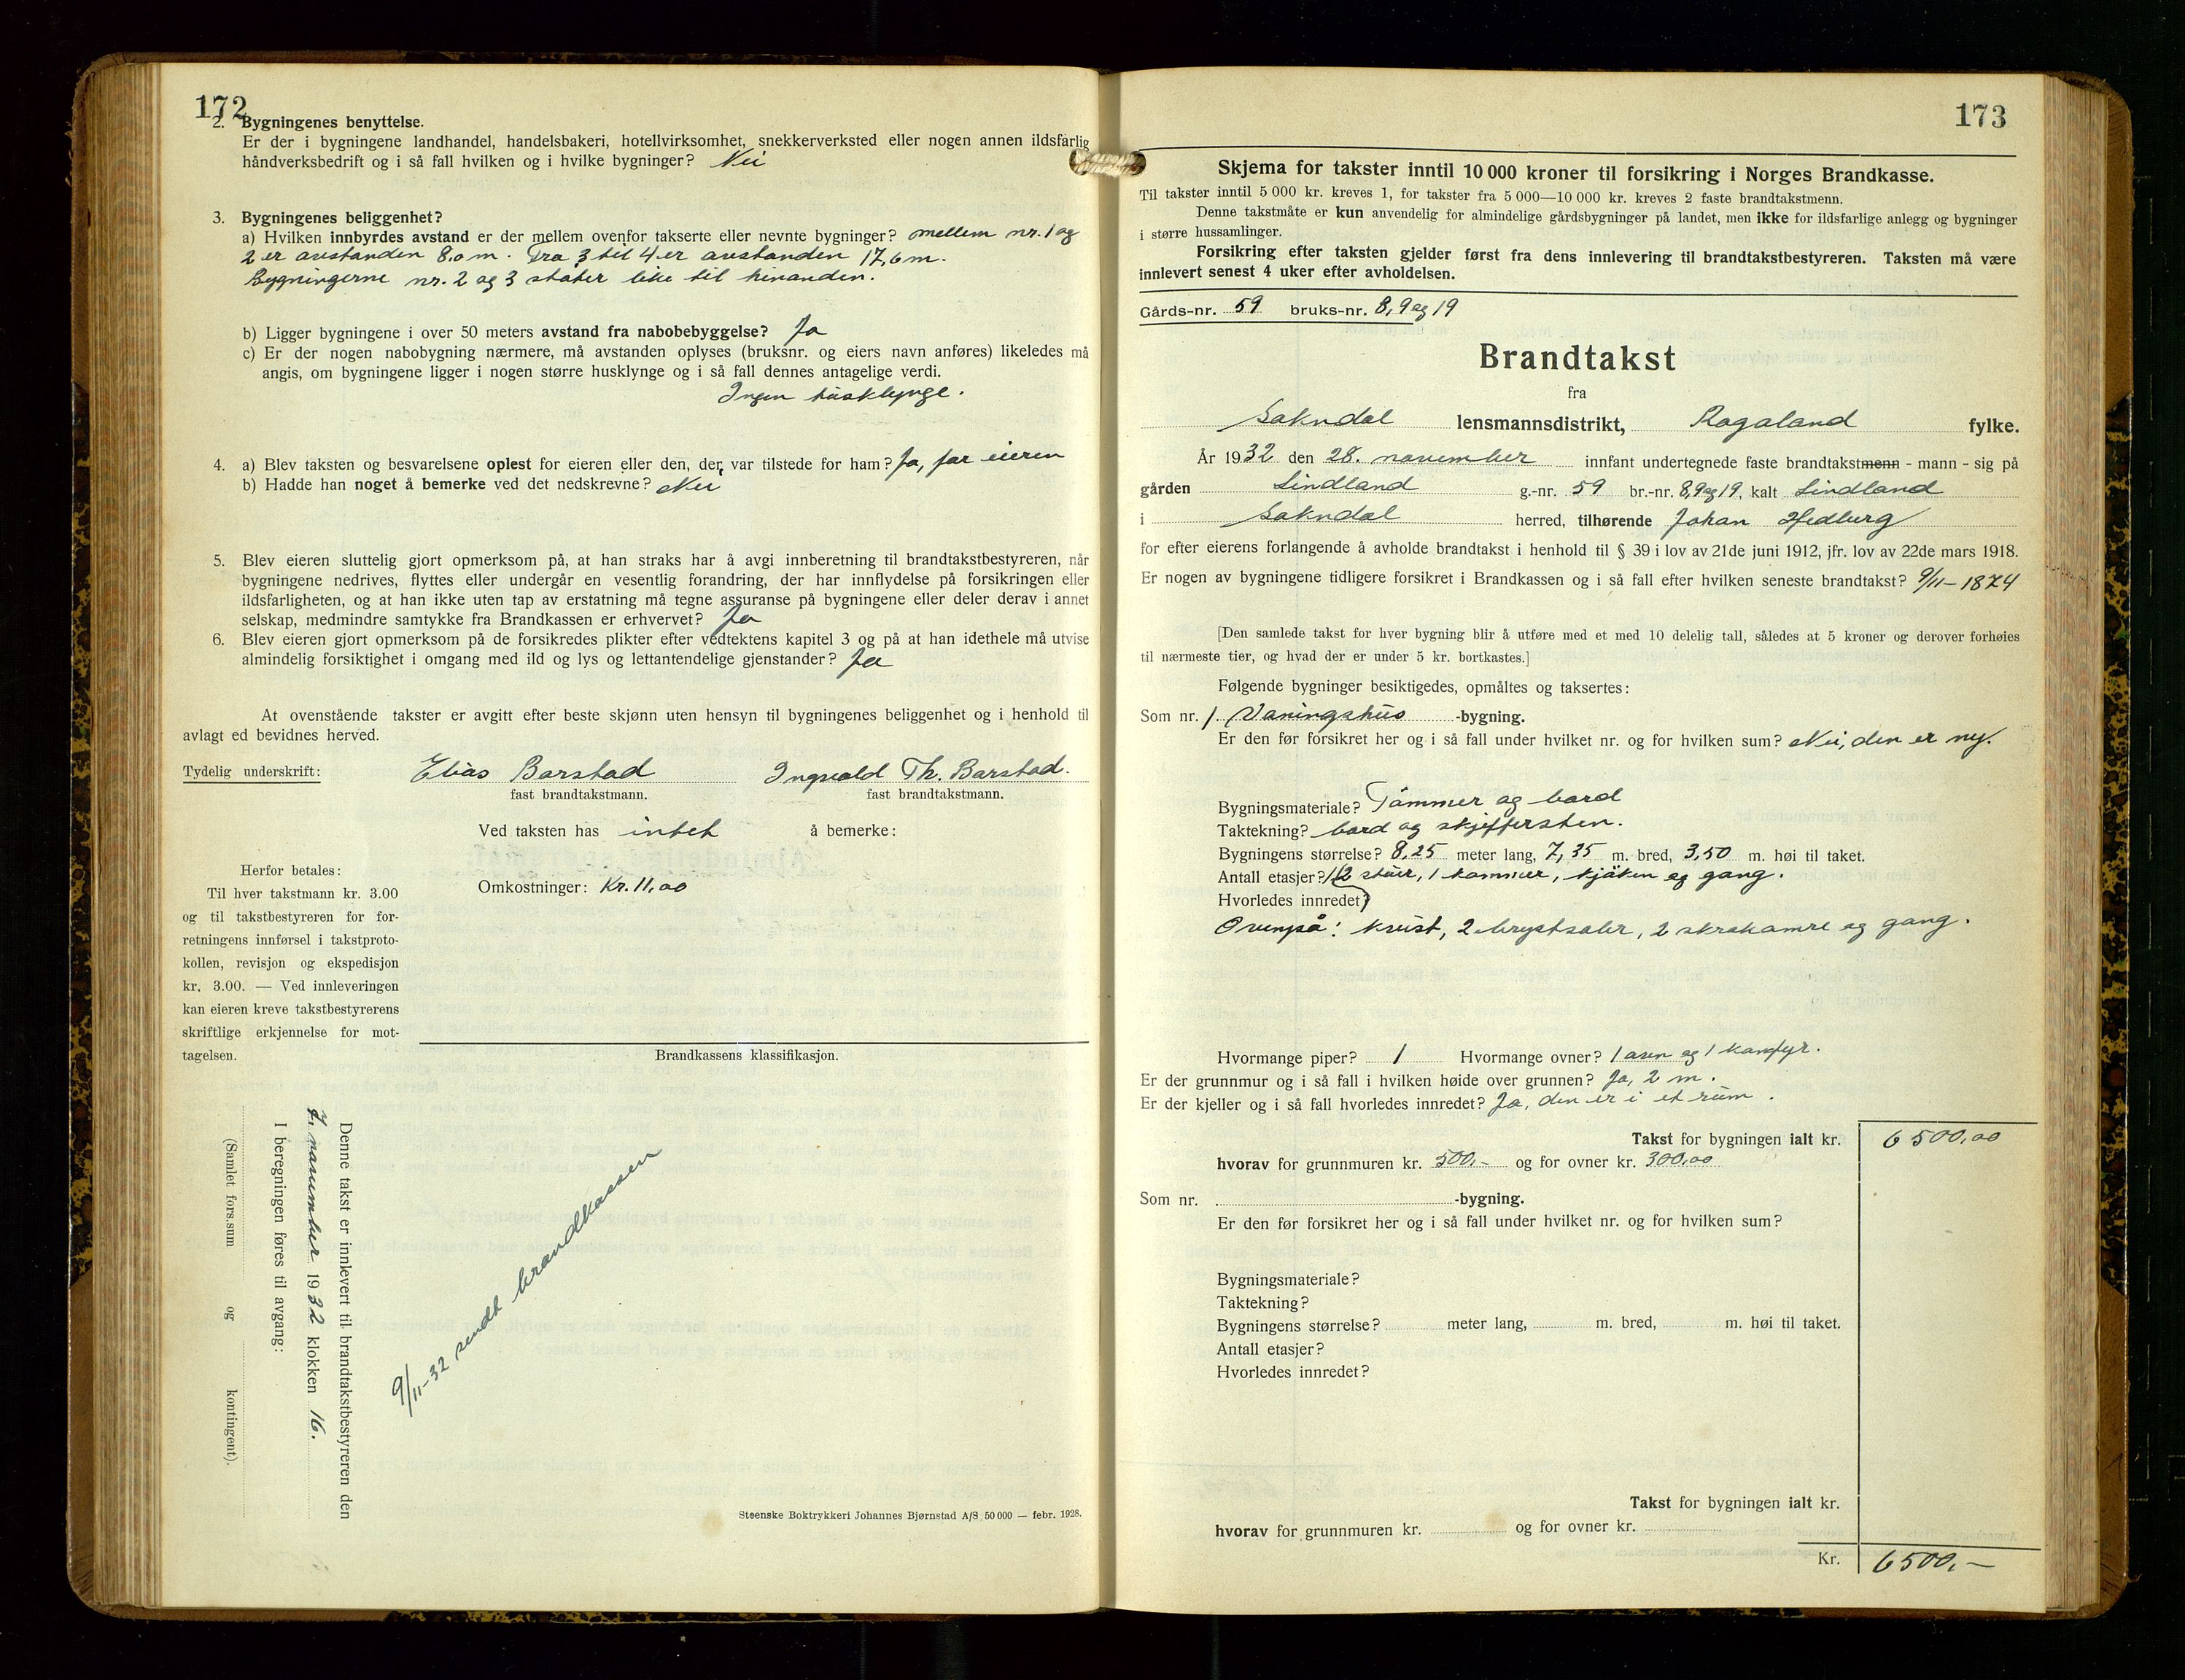 172
2. Bygningenes benyttelse.
Er der i bygningene landhandel, handelsbakeri, hotellvirksomhet, snekkerverksted eller nogen annen ildsfarlig
håndverksbedrift og i så fall hvilken og i hvilke bygninger? Nei
3. Bygningenes beliggenhet?
a) Hvilken innbyrdes avstand er der mellem ovenfor takserte eller nevnte bygninger? mellem nr. 1 og
2 er avstanden 8,0 m. Fra 3 til 4 er avstanden 17,6 m.
Bygningerne nr. 2 og 3 støter like til hinanden.
b) Ligger bygningene i over 50 meters avstand fra nabobebyggelse? Ja
c) Er der nogen nabobygning nærmere, må avstanden oplyses (bruksnr. og eiers navn anføres) likeledes må
angis, om bygningene ligger i nogen større husklynge og i så fall dennes antagelige verdi.
Ingen husklynge.
4. a) Blev taksten og besvarelsene oplest for eieren eller den, der var tilstede for ham? Ja, for eieren
b) Hadde han noget å bemerke ved det nedskrevne? Nei
5. Blev eieren sluttelig gjort opmerksom på, at han straks har å avgi innberetning til brandtakstbestyreren, når
bygningene nedrives, flyttes eller undergår en vesentlig forandring, der har innflydelse på forsikringen eller
ildsfarligheten, og at han ikke uten tap av erstatning må tegne assuranse på bygningene eller deler derav i annet
selskap, medmindre samtykke fra Brandkassen er erhvervet? Ja
6. Blev eieren gjort opmerksom på de forsikredes plikter efter vedtektens kapitel 3 og på at han idethele må utvise
almindelig forsiktighet i omgang med ild og lys og lettantendelige gjenstander? Ja
At ovenstående takster er avgitt efter beste skjønn uten hensyn til bygningenes beliggenhet og i henhold til
avlagt ed bevidnes herved.
Tydelig underskrift: Elias Barstad Ingvald Th. Barstad.
fast brandtakstmann. fast brandtakstmann.
Ved taksten has intet å bemerke:
Omkostninger: Kr. 11,00
Herfor betales:
Til hver takstmann kr. 3.00
og til takstbestyreren for for-
retningens innførsel i takstproto-
kollen, revisjon og ekspedisjon
kr. 3.00. — Ved innleveringen
kan eieren kreve takstbestyrerens
skriftlige erkjennelse for mot-
tagelsen.
Brandkassens klassifikasjon.
Denne takst er innlevert til brandtakstbestyreren den
7. november 1932 klokken 16.
I beregningen føres til avgang:
(Samlet fors.sum og kontingent).
9/11-32 sendt brandkassen
Steenske Boktrykkeri Johannes Bjørnstad A/S 50 000 — febr. 1928.
173
Skjema for takster inntil 10 000 kroner til forsikring i Norges Brandkasse.
Til takster inntil 5 000 kr. kreves 1, for takster fra 5 000—10 000 kr. kreves 2 faste brandtakstmenn.
Denne takstmåte er kun anvendelig for almindelige gårdsbygninger på landet, men ikke for ildsfarlige anlegg og bygninger
i større hussamlinger.
Forsikring efter taksten gjelder først fra dens innlevering til brandtakstbestyreren. Taksten må være
innlevert senest 4 uker efter avholdelsen.
Gårds-nr. 59 bruks-nr. 8, 9 og 19
Brandtakst
fra
Sokndal lensmannsdistrikt, Rogaland fylke.
År 1932 den 28. november innfant undertegnede faste brandtakstmenn - mann - sig på
gården Lindland g.-nr. 59 br.-nr. 8, 9 og 19, kalt Lindland
i Sokndal herred, tilhørende Johan Hedberg
for efter eierens forlangende å avholde brandtakst i henhold til § 39 i lov av 21de juni 1912, jfr. lov av 22de mars 1918.
Er nogen av bygningene tidligere forsikret i Brandkassen og i så fall efter hvilken seneste brandtakst? 9/11-1874
[Den samlede takst for hver bygning blir å utføre med et med 10 delelig tall, således at 5 kroner og derover forhøies
til nærmeste tier, og hvad der er under 5 kr. bortkastes.]
Følgende bygninger besiktigedes, opmåltes og taksertes:
Som nr. 1. Vaningshus -bygning.
Er den før forsikret her og i så fall under hvilket nr. og for hvilken sum? Nei, den er ny.
Bygningsmateriale? Tømmer og bord
Taktekning? bord og skjeffersten.
Bygningens størrelse? 8,25 meter lang, 7,35 m. bred, 3,50 m. høi til taket.
Antall etasjer? 1 (2 stuer, 1 kammer, kjøken og gang.
Hvorledes innredet?
Ovenpå: kvist, 2 brystsaler, 2 skrakamre og gang.
Hvormange piper? 1 Hvormange ovner? 1 ovn og 1 komfyr.
Er der grunnmur og i så fall i hvilken høide over grunnen? Ja, 2 m.
Er der kjeller og i så fall hvorledes innredet? Ja, den er i et rum.
Takst for bygningen ialt kr. 6500,00
hvorav for grunnmuren kr. 500,- og for ovner kr. 300,00
Som nr. -bygning.
Er den før forsikret her og i så fall under hvilket nr. og for hvilken sum?
Bygningsmateriale?
Taktekning?
Bygningens størrelse? meter lang, m. bred, m. høi til taket.
Antall etasjer?
Hvorledes innredet?
Takst for bygningen ialt kr.
hvorav for grunnmuren kr. og for ovner kr.
Kr. 6500,-